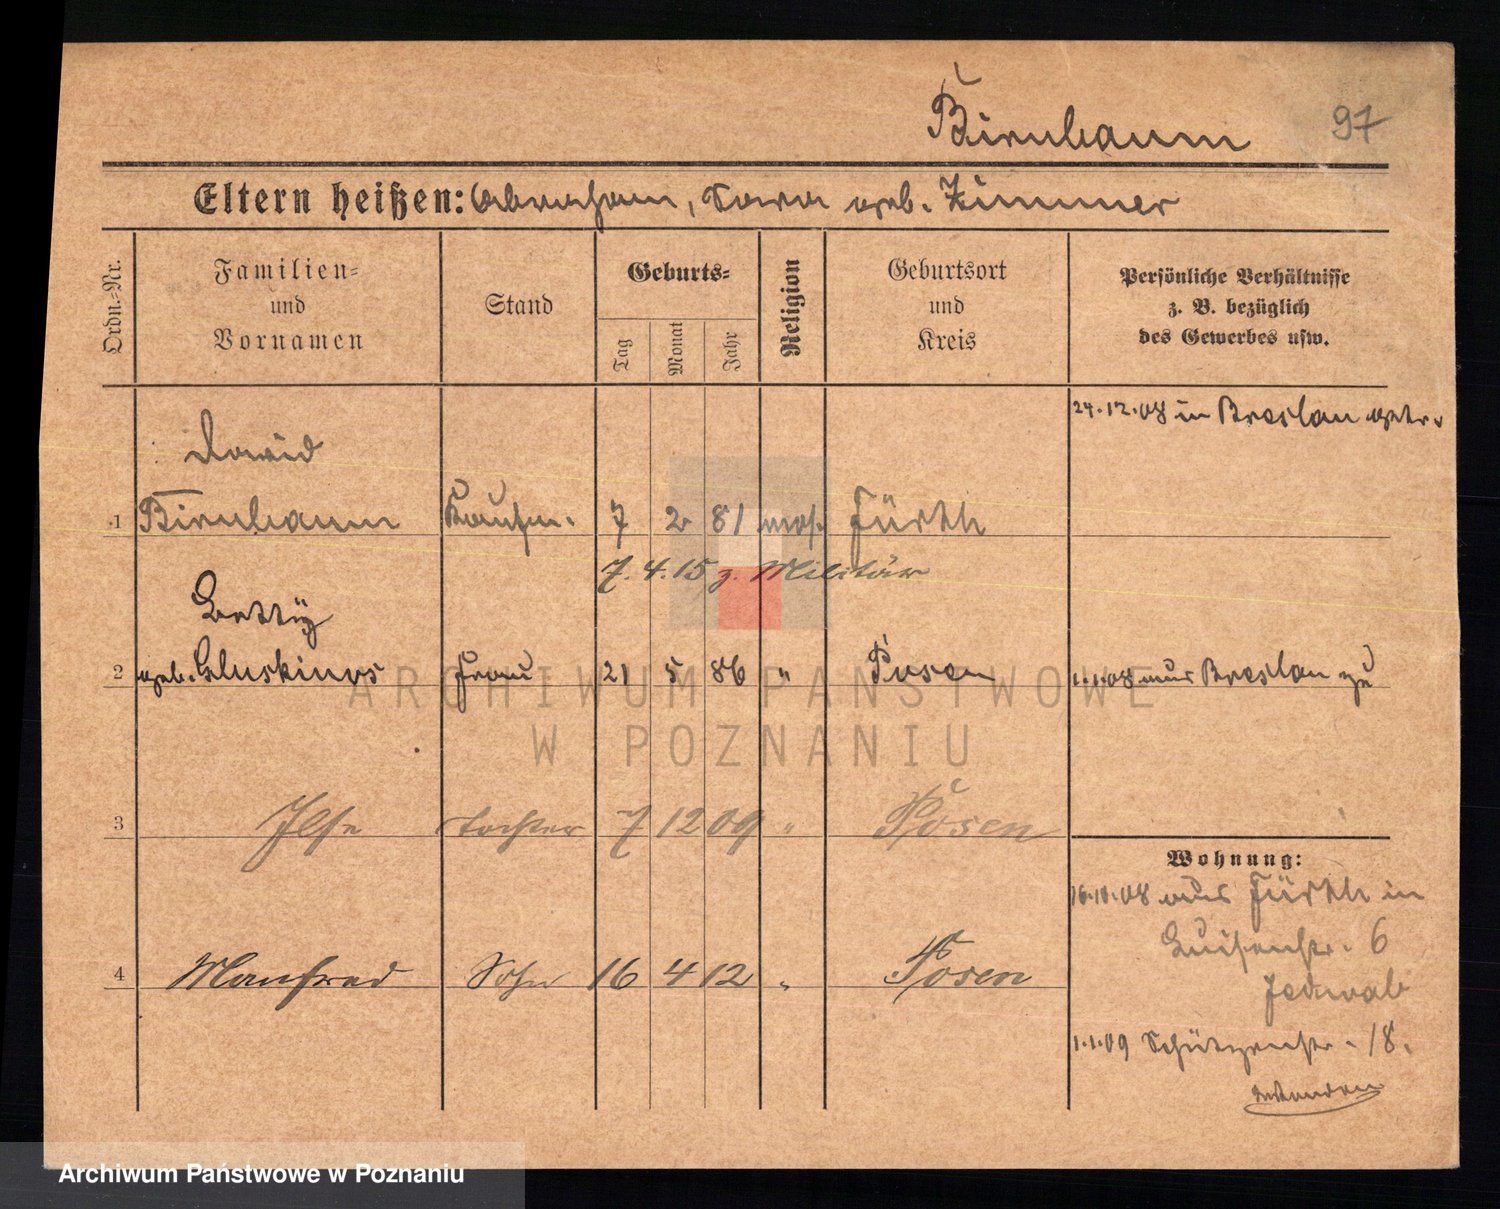 Birnbaum
97
Eltern heißen: Abraham, Sara geb. Zimmer
Ordn.-Nr.
Familien-
und
Vornamen
Stand
Geburts-
Tag
Monat
Jahr
Religion
Geburtsort
und
Kreis
Persönliche Verhältnisse
z. B. bezüglich
des Gewerbes usw.
24.12.08 in Breslau getr.
Dawid
1 Birnbaum Kaufm. 7 2 81 mos. Fürth
7.4.15 z. Militär
Betty
2 geb. Gluskinos Frau 21 5 86 " Posen 1.1.08 aus Breslau zu
3 Ilse Tochter 7 12 09 " Posen
Wohnung:
16.10.08 aus Fürth in
Luisenstr. 6
Jedwab
4 Manfred Sohn 16 4 12 " Posen
1.1.09 Schützenstr. 18.
ARCHIWUM PAŃSTWOWE
W POZNANIU
Archiwum Państwowe w Poznaniu